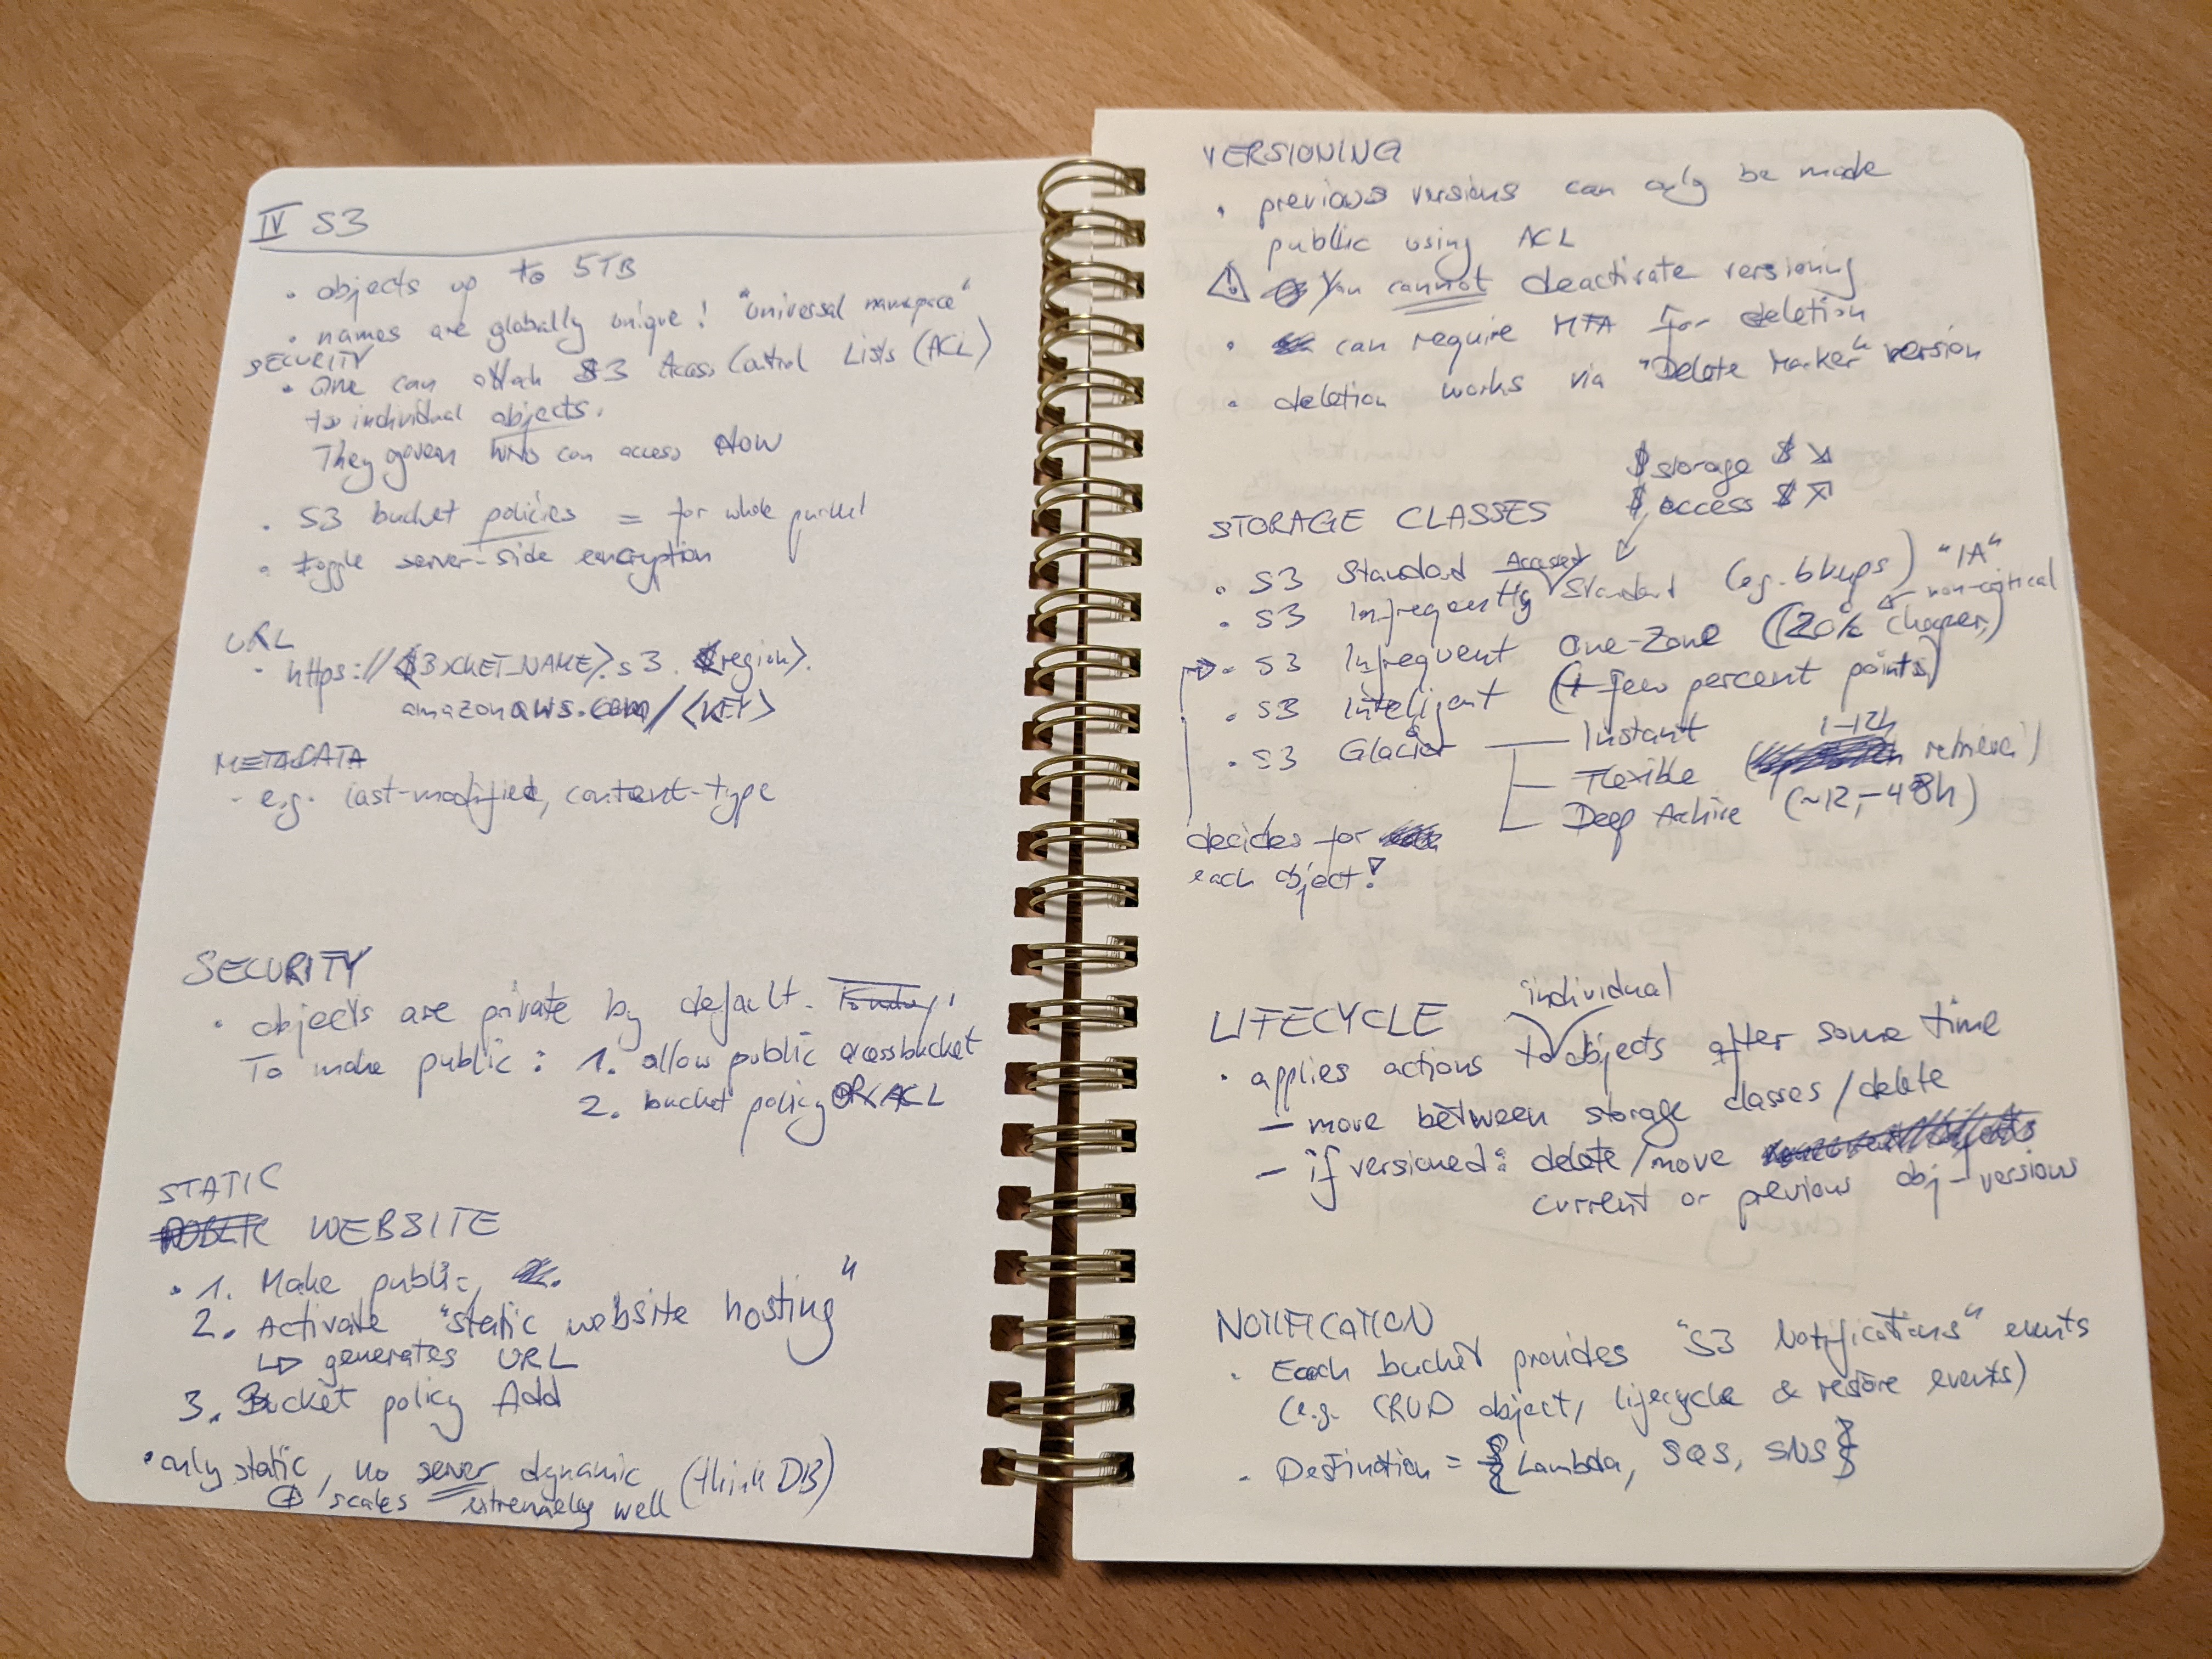 IV S3
· objects up to 5TB
· names are globally unique! "universal namespace"
SECURITY
· One can attach S3 Access Control Lists (ACL)
to individual objects.
They govern WHO can access HOW
· S3 bucket policies = for whole
· toggle server-side encryption
URL
· https://<$BUCKET_NAME>.s3.<region>.
amazonaws.com/<KEY>
METADATA
- e.g. last-modified, content-type
SECURITY
· objects are private by default.
To make public: 1. allow public access bucket
2. bucket policy OR ACL
STATIC
WEBSITE
· 1. Make public,
2. Activate "static website hosting"
↳ generates URL
3. Bucket policy Add
· only static, no server dynamic (think DB)
⊕ scales extremely well
VERSIONING
· previous versions can only be made
public using ACL
⚠ You cannot deactivate versioning
· can require MFA for deletion
· deletion works via "Delete Marker" version
$ storage $ ↘
$ access $ ↗
STORAGE CLASSES
· S3 Standard
· S3 Infrequently Accessed Standard (e.g. bkups) "IA"
non-critical
· S3 Infrequent One-Zone (20% cheaper)
· S3 Inteligent (+ few percent points)
· S3 Glacier Instant
Flexible (1-12h retrieval)
Deep Achive (~12,-48h)
decides for
each object!
LIFECYCLE
individual
· applies actions to objects after some time
- move between storage classes/delete
- if versioned: delete/move
current or previous obj-versions
NOTIFICATION
· Each bucket provides "S3 Notifications" events
(e.g. CRUD object, lifecycle & restore events)
· Destination = {Lambda, SQS, SNS}